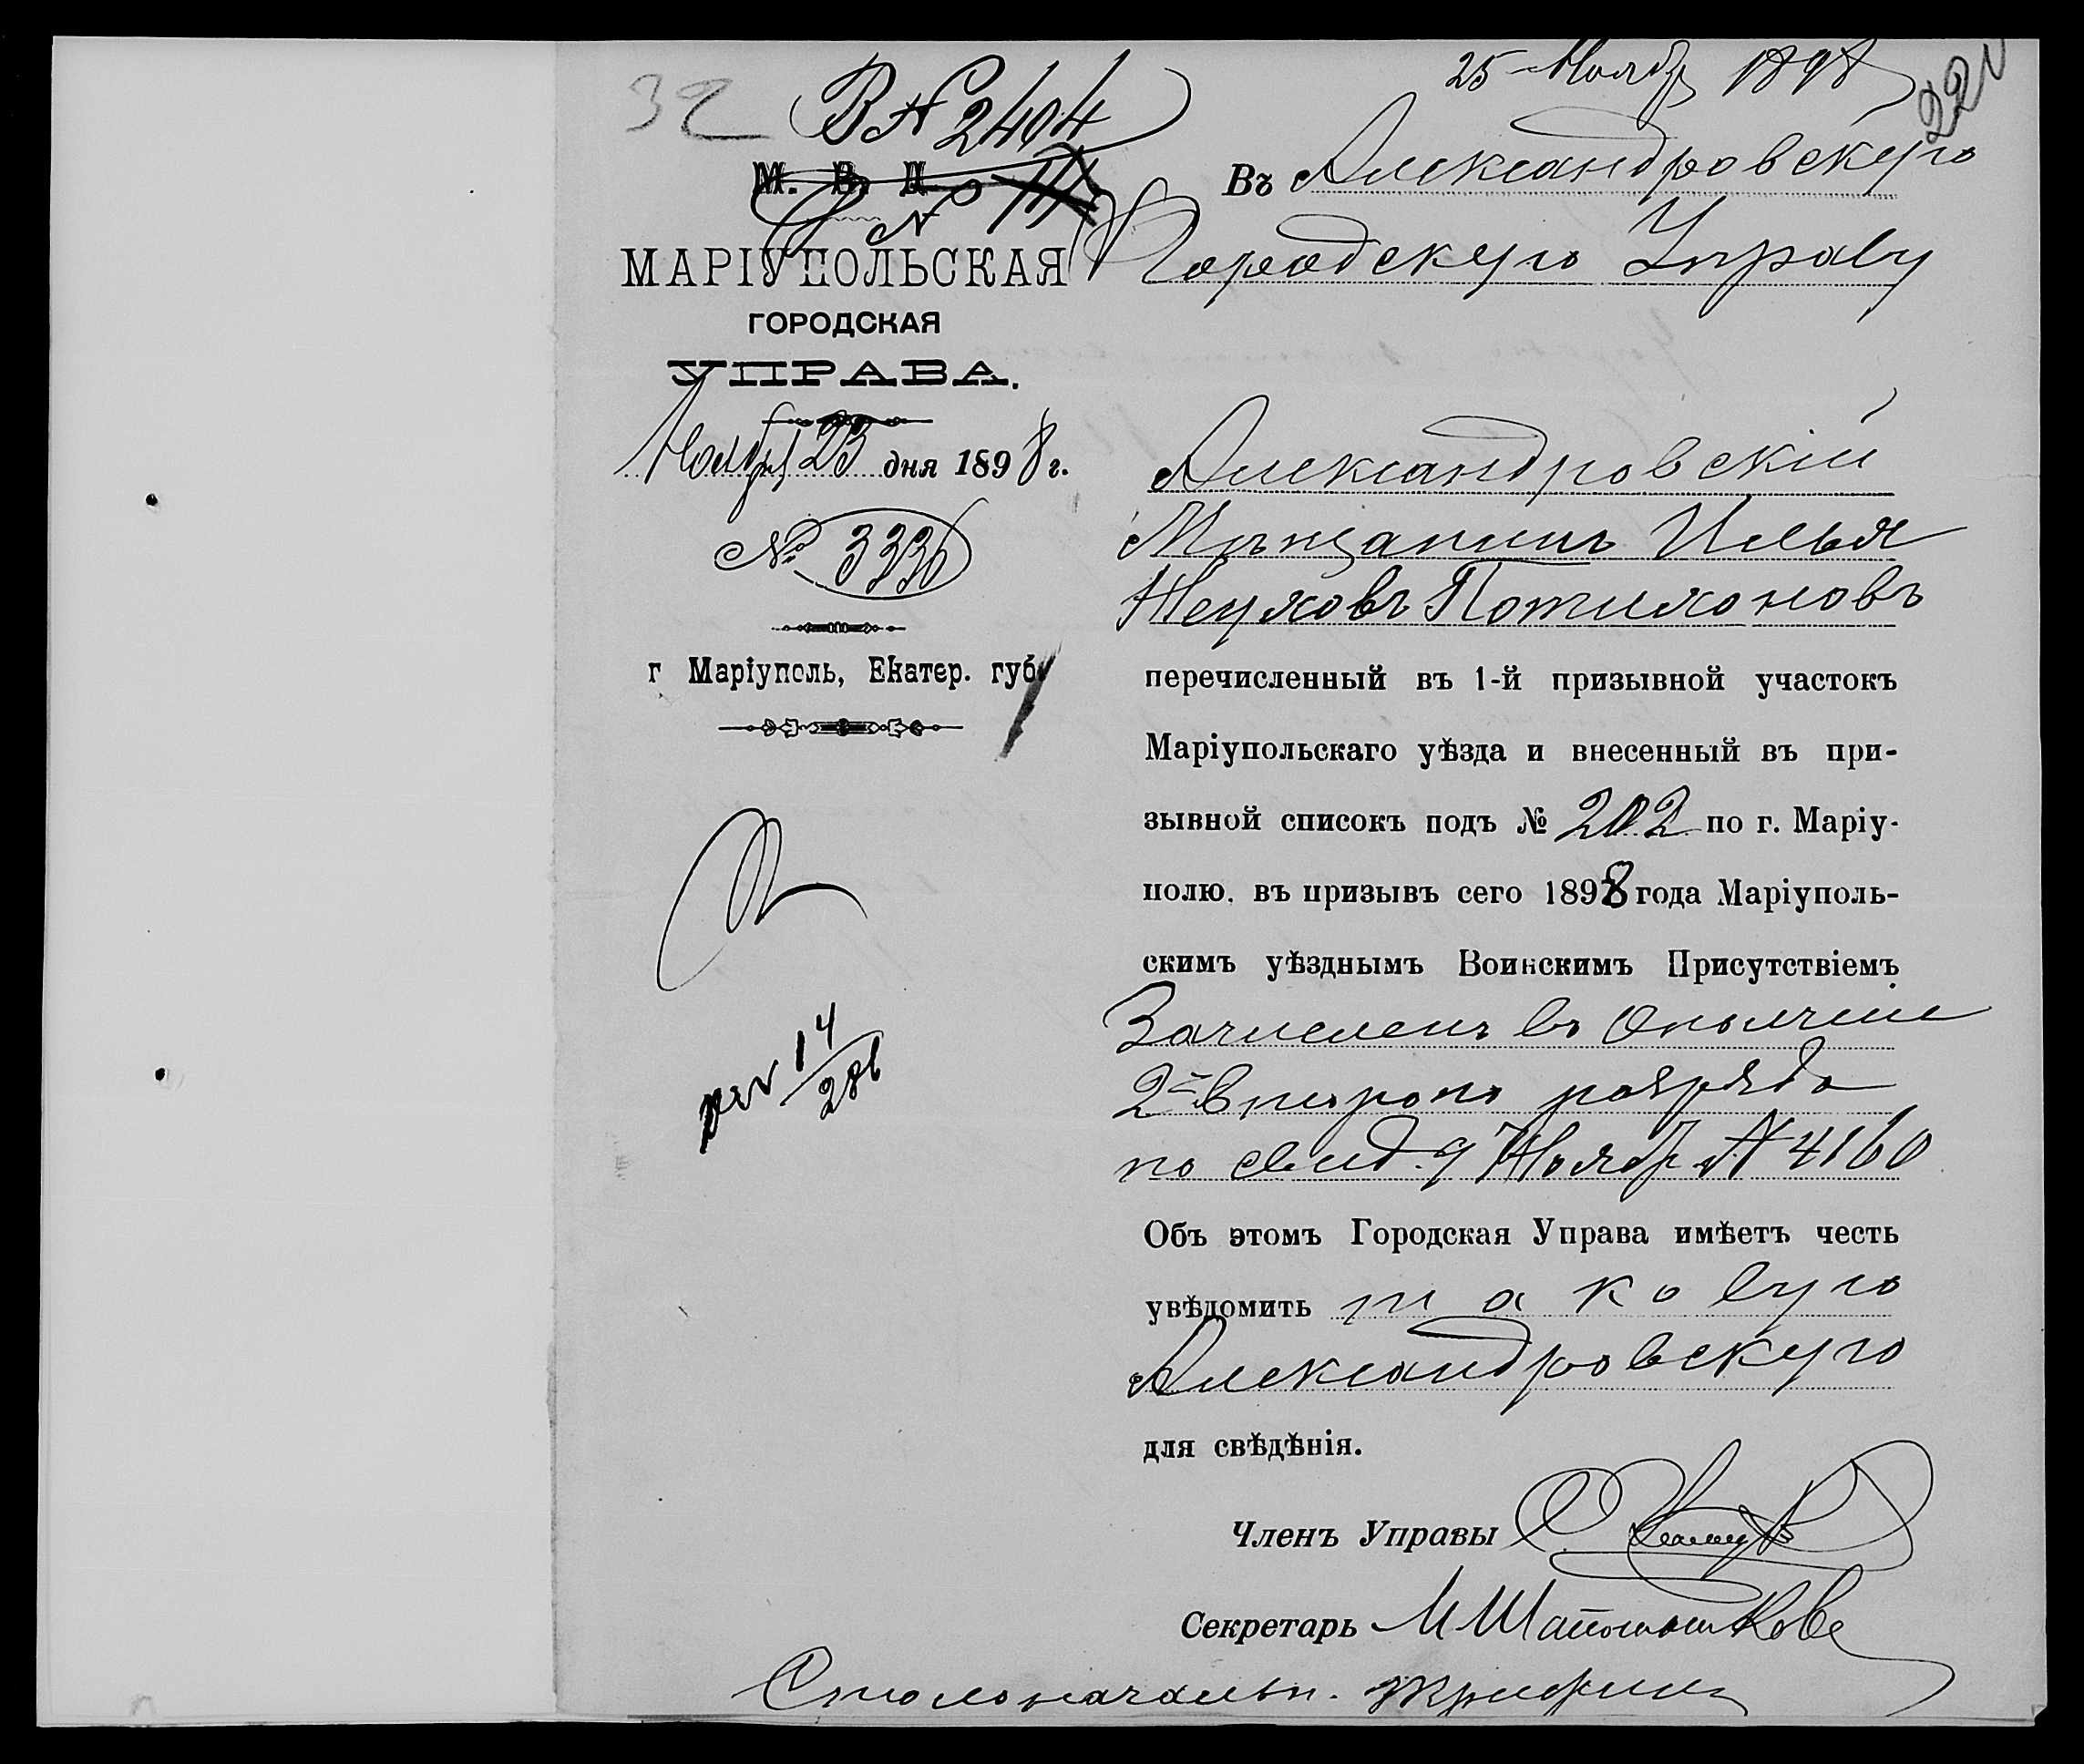 25 Ноябр 1898
221
32
В № 2404
М. В. Д.
№
МАРІУПОЛЬСКАЯ
ГОРОДСКАЯ
УПРАВА.
Ноября 23 дня 1898 г.
№ 3336
г Маріуполь, Екатер. губ.
14
286
Въ Александровскую
Городскую Управу
Александровскій
Мѣщанинъ Илья
Неуховъ Потихоновъ
перечисленный въ 1-й призывной участокъ
Маріупольскаго уѣзда и внесенный въ при-
зывной списокъ подъ № 202 по г. Маріу-
полю. въ призывъ сего 1898 года Маріуполь-
скимъ уѣзднымъ Воинскимъ Присутствіемъ
Зачисленъ въ Ополчение
2го второго разряда
по свид. 9 Ноябр № 4160
Объ этомъ Городская Управа имѣетъ честь
увѣдомить таковую
Александровскую
для свѣдѣнія.
Членъ Управы
Секретарь М Шапошниковъ
Столоначальн.